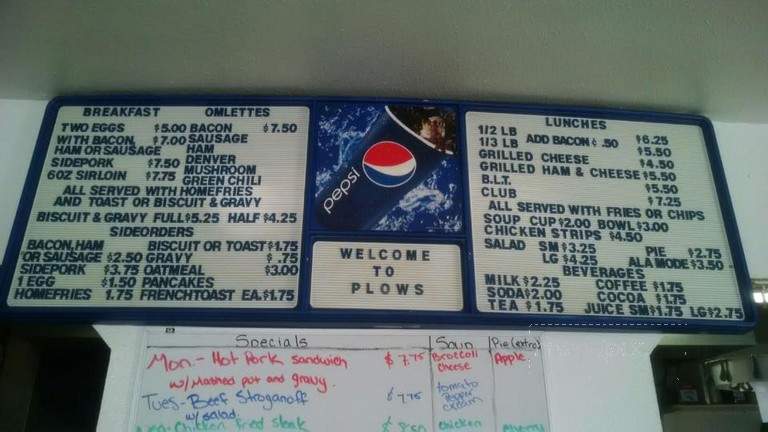 BREAKFAST OMLETTES
TWO EGGS $5.00 BACON $7.50
WITH BACON, $7.00 SAUSAGE
HAM OR SAUSAGE HAM
SIDEPORK $7.50 DENVER
6OZ SIRLOIN $7.75 MUSHROOM
GREEN CHILI
ALL SERVED WITH HOMEFRIES
AND TOAST OR BISCUIT & GRAVY
BISCUIT & GRAVY FULL $5.25 HALF $4.25
SIDEORDERS
BACON,HAM BISCUIT OR TOAST $1.75
OR SAUSAGE $2.50 GRAVY $.75
SIDEPORK $3.75 OATMEAL $3.00
1 EGG $1.50 PANCAKES
HOMEFRIES 1.75 FRENCHTOAST EA.$1.75
pepsi
WELCOME
TO
PLOWS
LUNCHES
1/2 LB ADD BACON ¢ .50 $6.25
1/3 LB $5.50
GRILLED CHEESE $4.50
GRILLED HAM & CHEESE $5.50
B.L.T. $5.50
CLUB $7.25
ALL SERVED WITH FRIES OR CHIPS
SOUP CUP $2.00 BOWL $3.00
CHICKEN STRIPS $4.50
SALAD SM $3.25 PIE $2.75
LG $4.25 ALA MODE $3.50
BEVERAGES
MILK $2.25 COFFEE $1.75
SODA $2.00 COCOA $1.75
TEA $1.75 JUICE SM $1.75 LG $2.75
Specials Soup Pie (extra)
Mon - Hot Pork sandwich $7.75 Broccoli Apple
w/ Mashed pot and gravy. cheese
Tues - Beef Stroganoff $7.75 tomato
w/ salad. pepper
cream
Chicken fried steak $8.50 chicken cherry